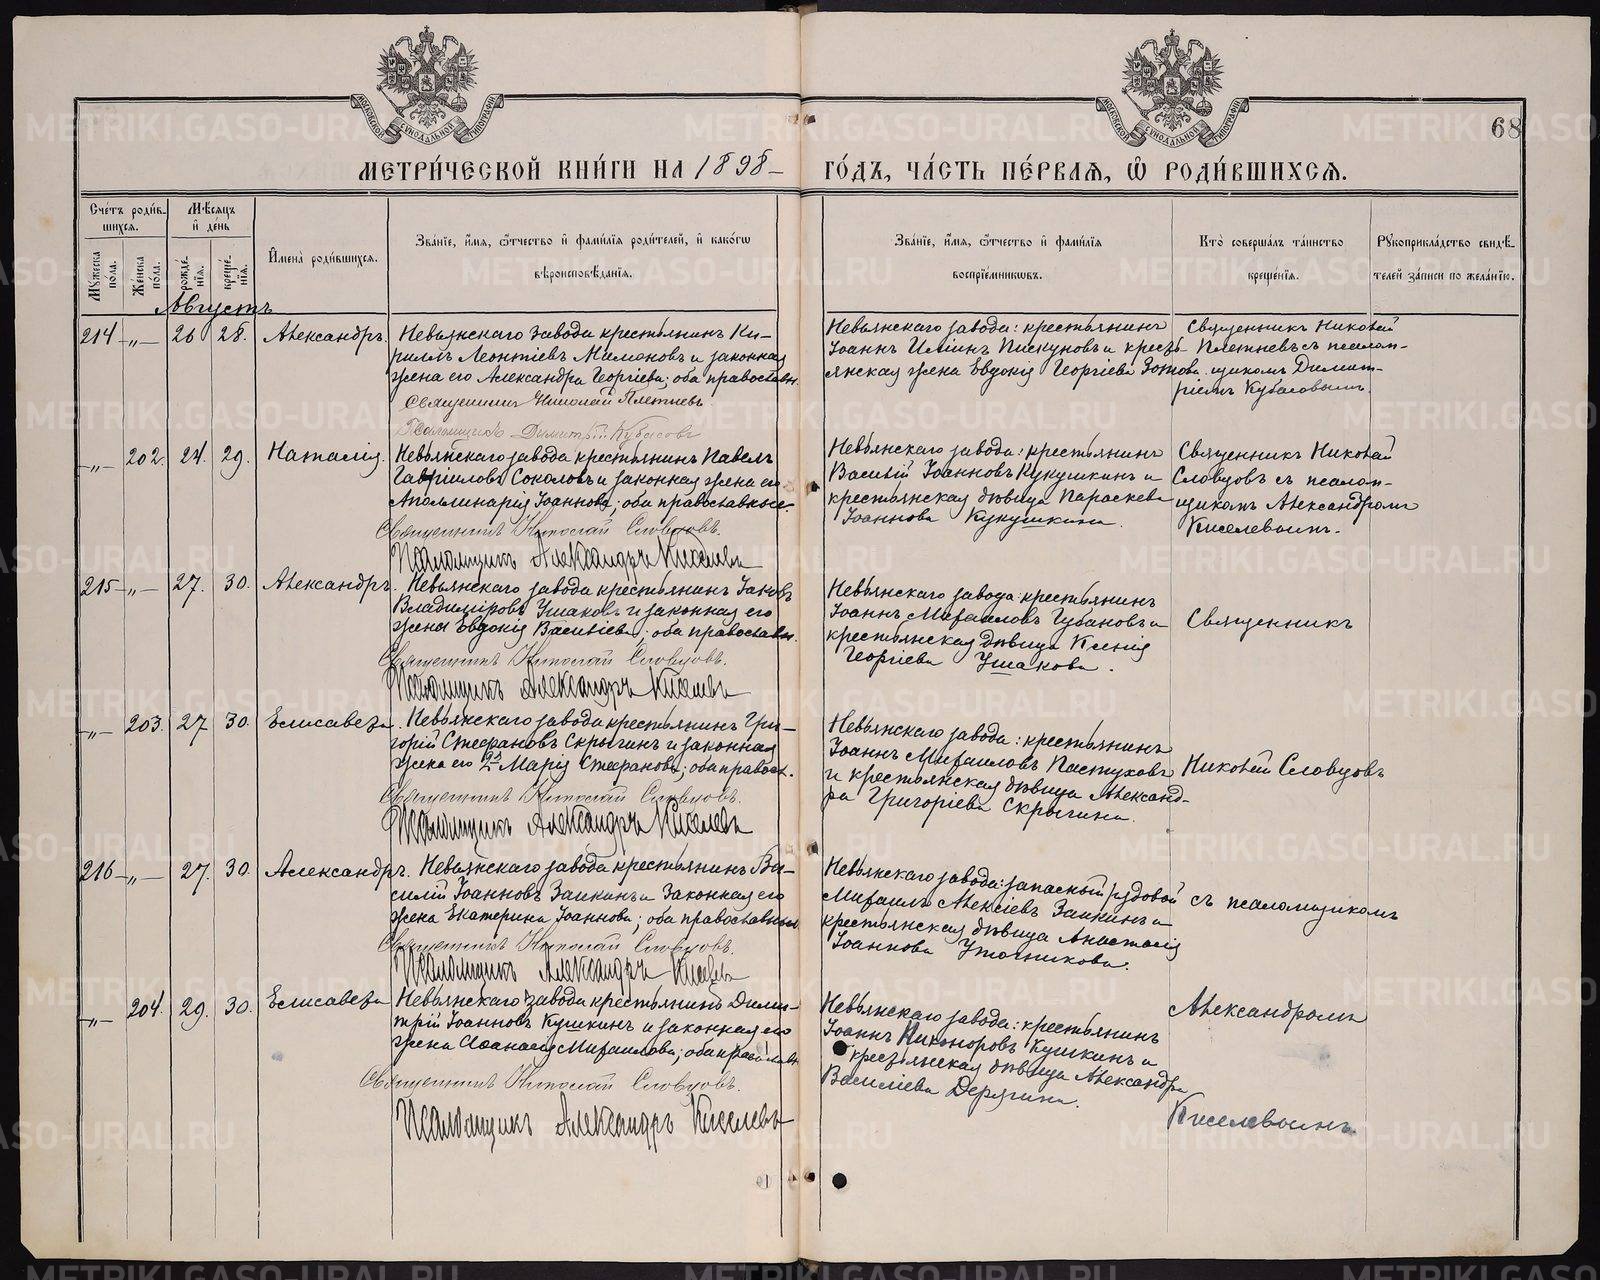 МОСКОВСКОЙ СѴНОДАЛЬНОЙ ТИПОГРАФІИ
МОСКОВСКОЙ СѴНОДАЛЬНОЙ ТИПОГРАФІИ
68
МЕТРИ́ЧЕСКОЙ КНИ́ГИ НА 1898 – ГО́ДЪ, ЧА́СТЬ ПЕ́РВАѦ, Ѡ҆ РОДИ́ВШИХСѦ.
Сче́тъ роди́в-
шихсѧ.
Мѣ́сѧцъ
и҆ де́нь
И҆мена̀ роди́вшихсѧ.
Зва́нїе, и҆́мѧ, ѻ҆́тчество и҆ фамі́лїѧ роди́телей, и҆ како́гѡ
вѣроисповѣ́данїѧ.
Зва́нїе, и҆́мѧ, ѻ҆́тчество и҆ фамі́лїѧ
воспрїе́мникѡвъ.
Кто̀ соверша́лъ та́инство
креще́нїѧ.
Рꙋкоприкла́дство свидѣ́-
телей за́писи по жела́нїю.
Мꙋ́жеска
по́ла.
Же́нска
по́ла.
рожде́-
нїѧ.
креще́-
нїѧ.
Августъ
214 –„– 26 28. Александръ.
Невьянскаго завода крестьянинъ Ки-
риллъ Леонтіевъ Мамоновъ и законная
жена его Александра Георгіева; оба православн.
Священникъ Николай Плетневъ.
Псаломщикъ Димитрій Кубасовъ
Невьянскаго завода: крестьянинъ
Іоаннъ Иліинъ Пискуновъ и кресть-
янская жена Евдокія Георгіева Зотова.
Священникъ Николай
Плетневъ съ псалом-
щикомъ Димит-
ріемъ Кубасовымъ.
–„– 202. 24. 29. Наталія.
Невьянскаго завода крестьянинъ Павелъ
Гавріиловъ Соколовъ и законная жена его
Аполлинарія Іоаннова; оба православные.
Священникъ Николай Словцовъ.
Псаломщикъ Александръ Киселевъ
Невьянскаго завода: крестьянинъ
Василій Іоанновъ Кукушкинъ и
крестьянская дѣвица Параскева
Іоаннова Кукушкина.
Священникъ Николай
Словцовъ съ псалом-
щикомъ Александромъ
Киселевымъ.
215 –„– 27. 30. Александръ.
Невьянскаго завода крестьянинъ Іаковъ
Владиміровъ Ушаковъ и законная его
жена Евдокія Васильева; оба православн.
Священникъ Николай Словцовъ.
Псаломщикъ Александръ Киселевъ
Невьянскаго завода: крестьянинъ
Іоаннъ Михаиловъ Губановъ и
крестьянская дѣвица Ксенія
Георгіева Ушакова.
Священникъ
–„– 203. 27 30. Елисавета.
Невьянскаго завода крестьянинъ Гри-
горій Стефановъ Скрыгинъ и законная
жена его Марія Стефанова; оба правосл.
Священникъ Николай Словцовъ.
Псаломщикъ Александръ Киселевъ
Невьянскаго завода: крестьянинъ
Іоаннъ Михаиловъ Пастуховъ
и крестьянская дѣвица Александ-
ра Григоріева Скрыгина.
Николай Словцовъ
216 –„– 27. 30. Александръ.
Невьянскаго завода крестьянинъ Ва-
силій Іоанновъ Заикинъ и законная его
жена Екатерина Іоаннова; оба православные
Священникъ Николай Словцовъ.
Псаломщикъ Александръ Киселевъ
Невьянскаго завода: запасный рядовой
Михаилъ Алексіевъ Заикинъ и
крестьянская дѣвица Анастасія
Іоаннова Уточникова.
съ псаломщикомъ
–„– 204. 29. 30. Елисавета
Невьянскаго завода крестьянинъ Дими-
трій Іоанновъ Кушкинъ и законная его
жена Аѳанасія Михаилова; оба православн.
Священникъ Николай Словцовъ.
Псаломщикъ Александръ Киселевъ
Невьянскаго завода: крестьянинъ
Іоаннъ Никоноровъ Кушкинъ и
крестьянская дѣвица Александра
Василіева Дерягина.
Александромъ
Киселевымъ.